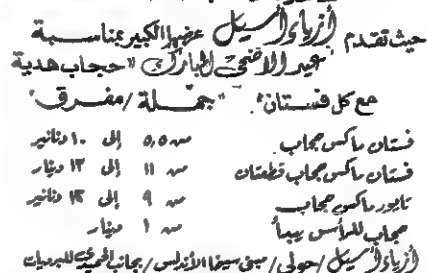 حيث تقدم أزياء أسيل عرضها الكبير بمناسبة
عيد الاضحى المبارك "حجاب هدية
مع كل فستان". "جملة / مفرق"
فستان ماكس حجاب من ٥,٥ إلى ١٠ دنانير
فستان ماكس حجاب قطعتان من ١١ إلى ١٣ دينار
تايور ماكس حجاب من ٩ إلى ١٣ دنانير
حجاب للرأس يبدأ من ١ دينار
أزياء أسيل / حولي / مبنى سينما الأندلس / بجانب الحميدي للبرديات